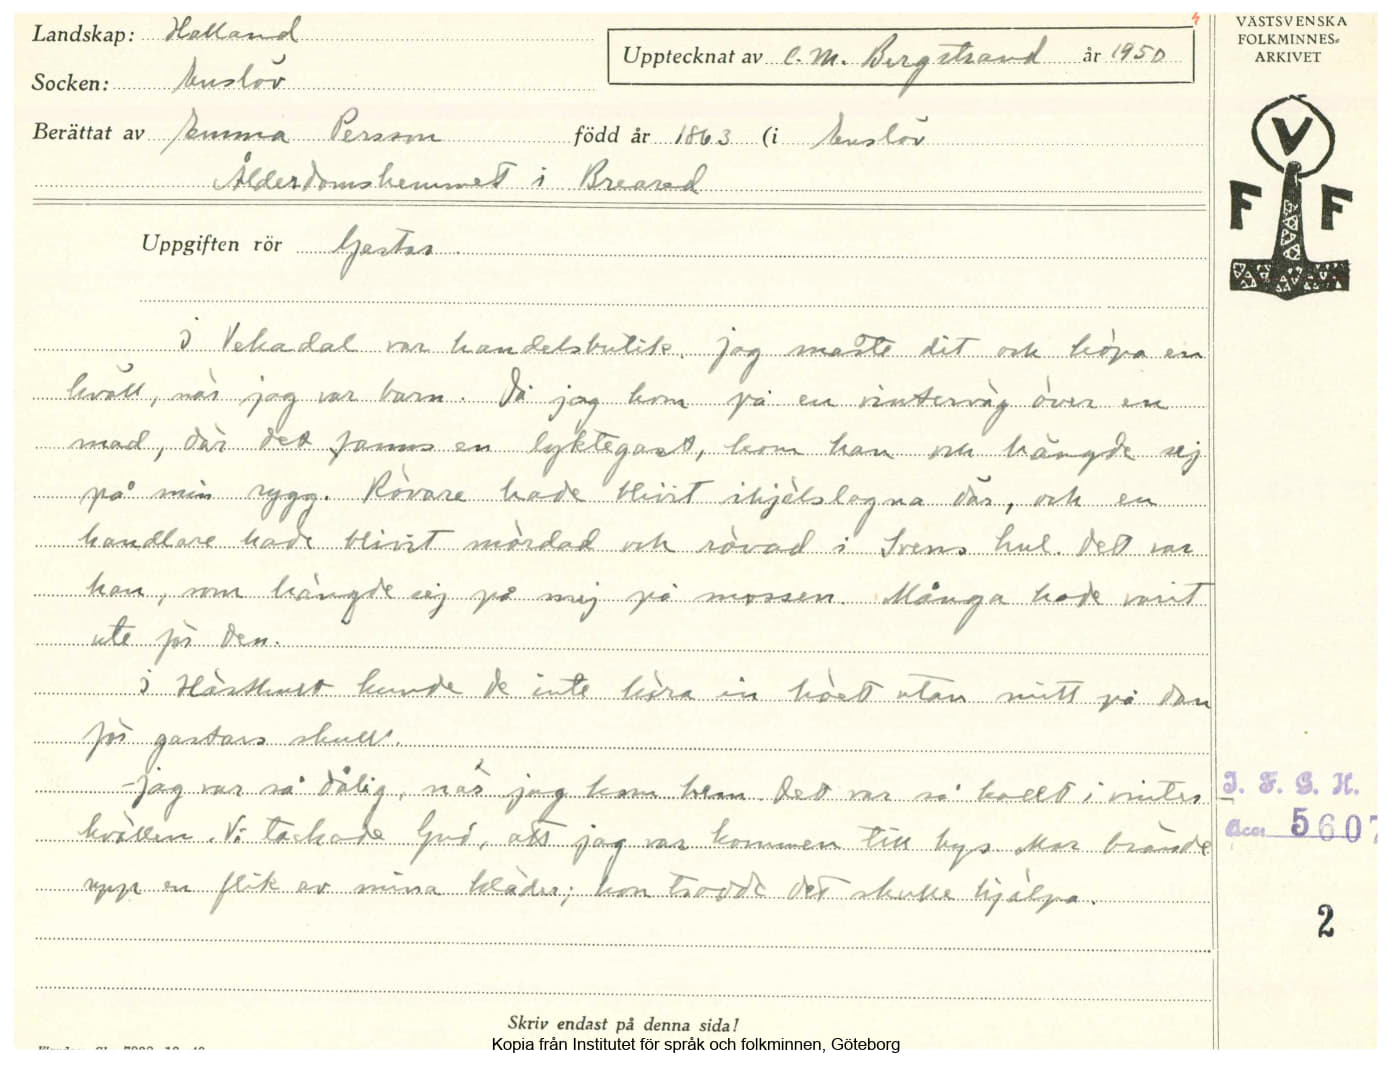 Landskap: Halland
Upptecknat av C. M. Bergstrand år 1950
VÄSTSVENSKA
FOLKMINNES-
ARKIVET
Socken: Enslöv
Berättat av Emma Persson född år 1863 (i Enslöv
Ålderdomshemmet i Breared
V
F F
Uppgiften rör Gastar.
I Vekadal var handelsbutik. Jag måste dit och köpa en
kväll, när jag var barn. Då jag kom på en vinterväg över en
mad, där det fanns en lyktegast, kom han och hängde sej
på min rygg. Rövare hade blivit ihjälslagna där, och en
handlare hade blivit mördad och rövad i Svens hul. Det var
han, som hängde sej på mej på mossen. Många hade varit
ute för den.
I Härthult kunde de inte köra in höet utan mitt på dan
för gastars skull.
-Jag var så dålig, när jag kom hem. Det var så kallt i vinter
kvällen. Vi tackade Gud, att jag var kommen till bys. Mor brände
upp en flik av mina kläder; hon trodde det skulle hjälpa.
I. F. G. H.
Acc. 5607
2
Skriv endast på denna sida!
Kopia från Institutet för språk och folkminnen, Göteborg